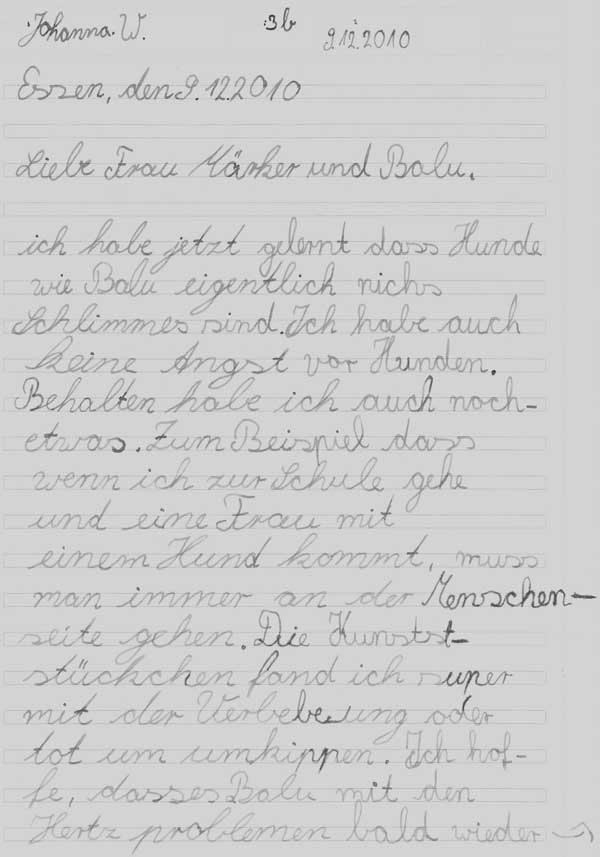 Johanna. W. 3b 9.12.2010
Essen, den 9.12.2010
Liebe Frau Märker und Balu.
ich habe jetzt gelernt dass Hunde
wie Balu eigentlich nichs
Schlimmes sind. Ich habe auch
keine Angst vor Hunden.
Behalten habe ich auch noch-
etwas. Zum Beispiel dass
wenn ich zur Schule gehe
und eine Frau mit
einem Hund kommt, muss
man immer an der Menschen-
seite gehen. Die Kunstst-
stückchen fand ich super
mit der Verbebeung oder
tot um umkippen. Ich hof-
fe, dasses Balu mit den
Hertz problemen bald wieder →